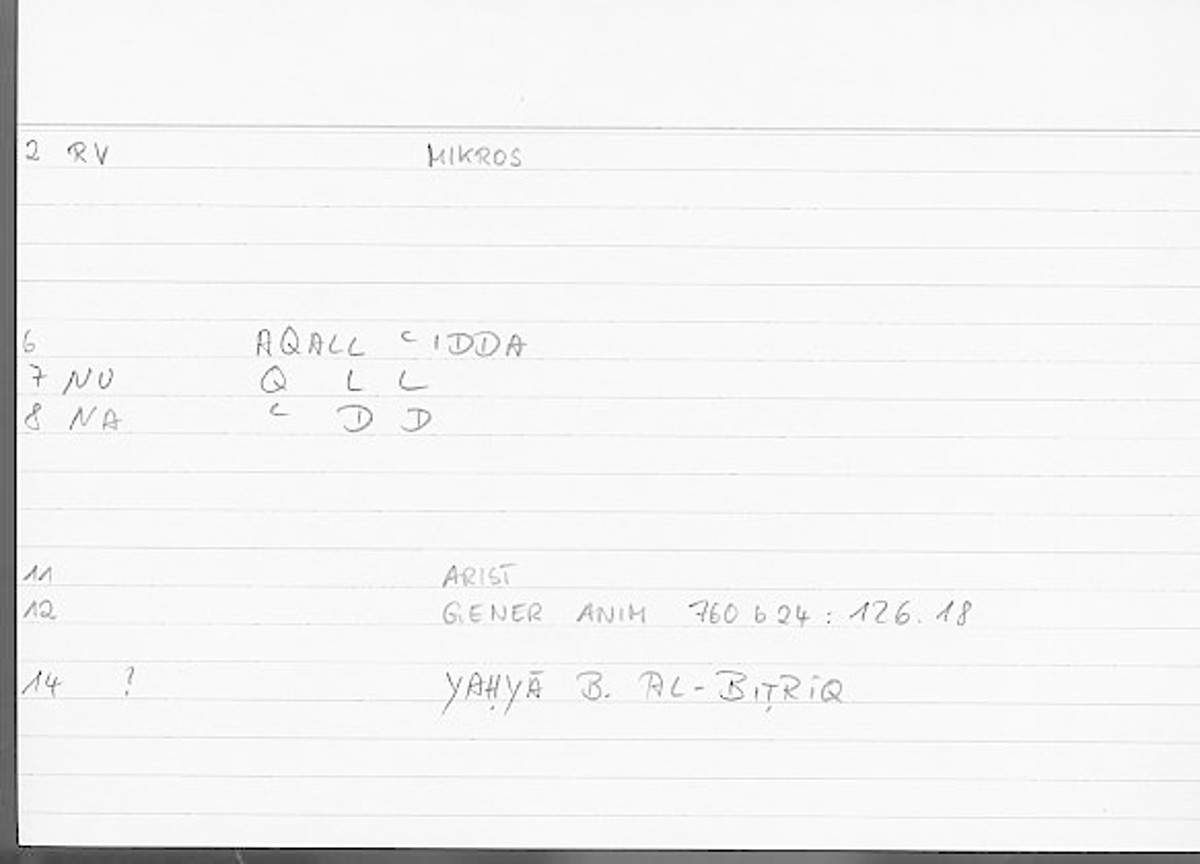 2 RV MIKROS
6 AQALL ʿIDDA
7 NU Q L L
8 NA ʿ D D
11 ARIST
12 GENER ANIM 760 b 24 : 126.18
14 ? YAḤYĀ B. AL-BIṬRĪQ